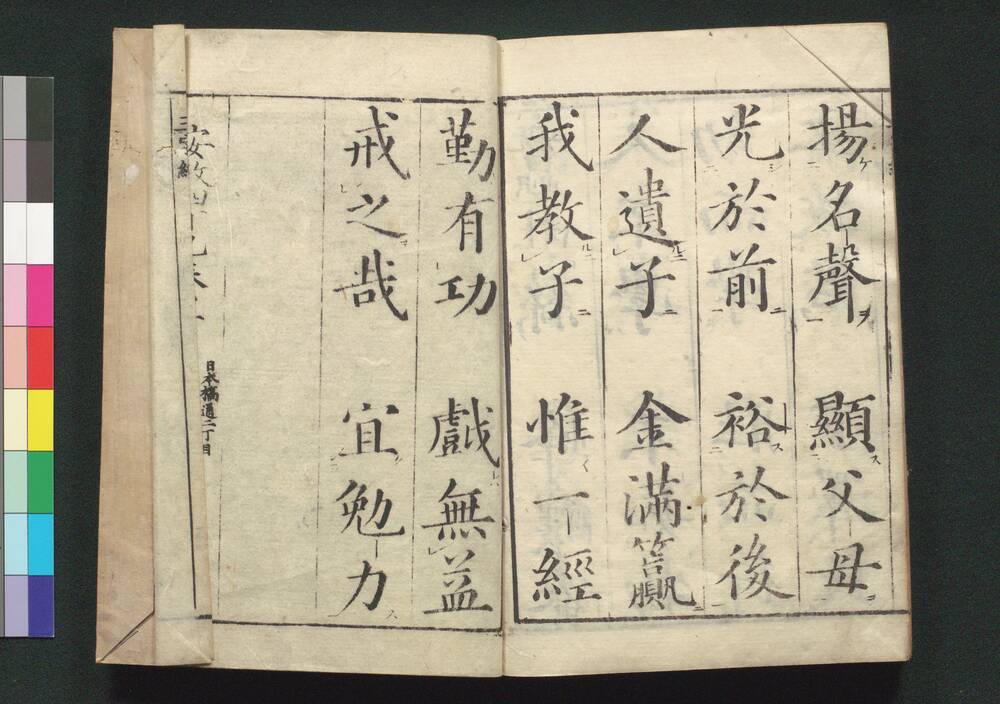 揚名聲 顯父母
光於前 裕於後
人遺子 金滿籯
我教子 惟一經
勤有功 戲無益
戒之哉 宜勉力
日本橋通二丁目